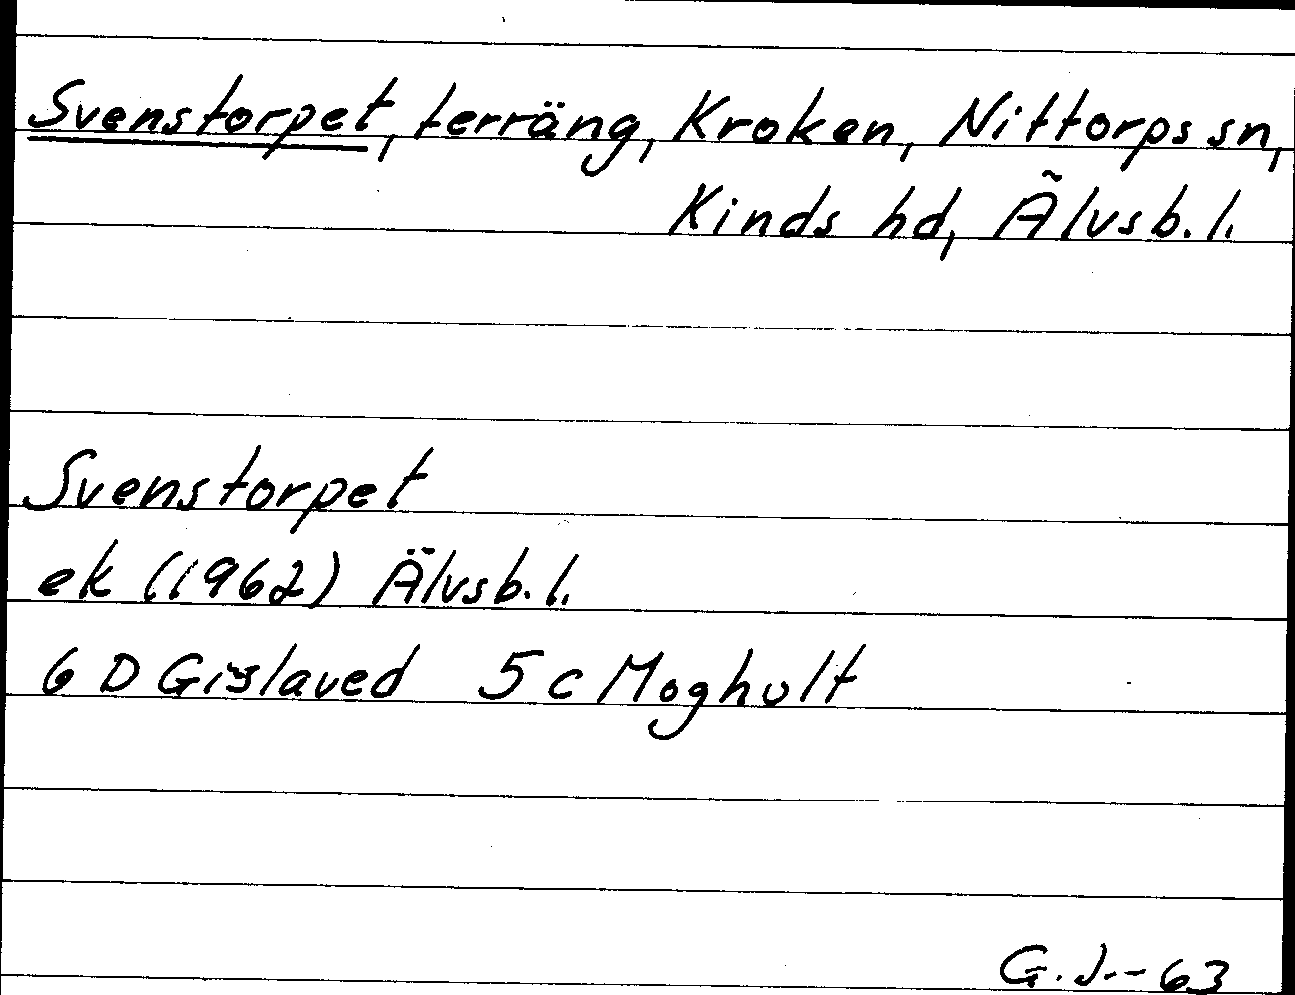 Svenstorpet, terräng, Kroken, Nittorps sn,
Kinds hd, Älvsb. l.
Svenstorpet
ek (1962) Älvsb. l.
6 D Gislaved 5 c Moghult
G. J. - 63